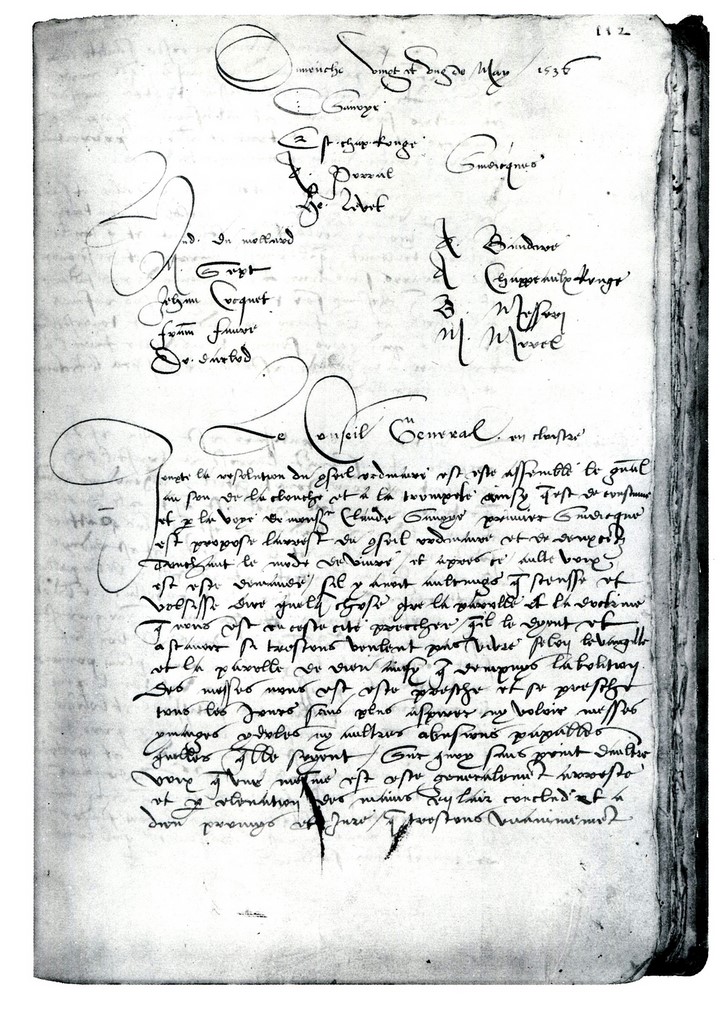 112
Dimenche vingt et ung de May 1536
C. Savoye
Est. chap. Rouge
A. Porral
He. Levet
Sindicques
And. du mollard
M. Sept
Jehan Cocquet
Fran. favre
Do. darlod
A. Bandiere
A. Chappeaulx Rouge
B. Messeri
M. Morel
Le Conseil General en cloistre
Jouxte la resolution du cseil ordinaire est este assemble le gnal
au son de la cloche et a la trompete ainsy q est de coustume
et p la voex de monsr Claude Savoye premier Sindicque
est propose larrest du cseil ordinaire et de deux cens
touchant le mode de vivre / et apres ce aulte voex
est este demande / sil y avoit aulcungs q sceusse et
volsisse dire quelq chose ctre la parolle et la doctrine
q nous est en ceste cite preschee / qil le dyent et
a scavoir si trestous veulent pas vivre selon levangille
et la parolle de dieu ainsy q dempuys labolition
des messes nous est este presche et se presche
tous les Jours sans plus aspirer ny voloir messes
ymaiges ydoles ny aultres abusions papalles
quelles qelle soyent / Sur quoy sans point daultre
voex q une mesme est este generalement arreste
et p elevation des mains en lair conclud et a
dieu promys et Jure / q trestous unanimemet